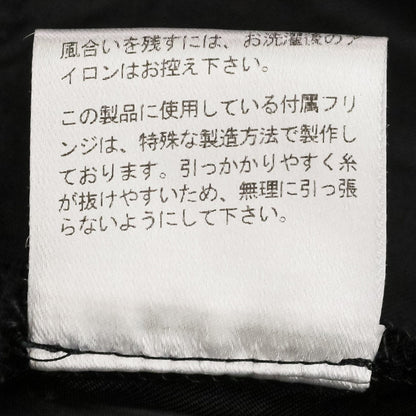 風合いを残すには、お洗濯後のア
イロンはお控え下さい。
この製品に使用している付属フリ
ンジは、特殊な製造方法で製作し
ております。引っかかりやすく糸
が抜けやすいため、無理に引っ張
らないようにして下さい。